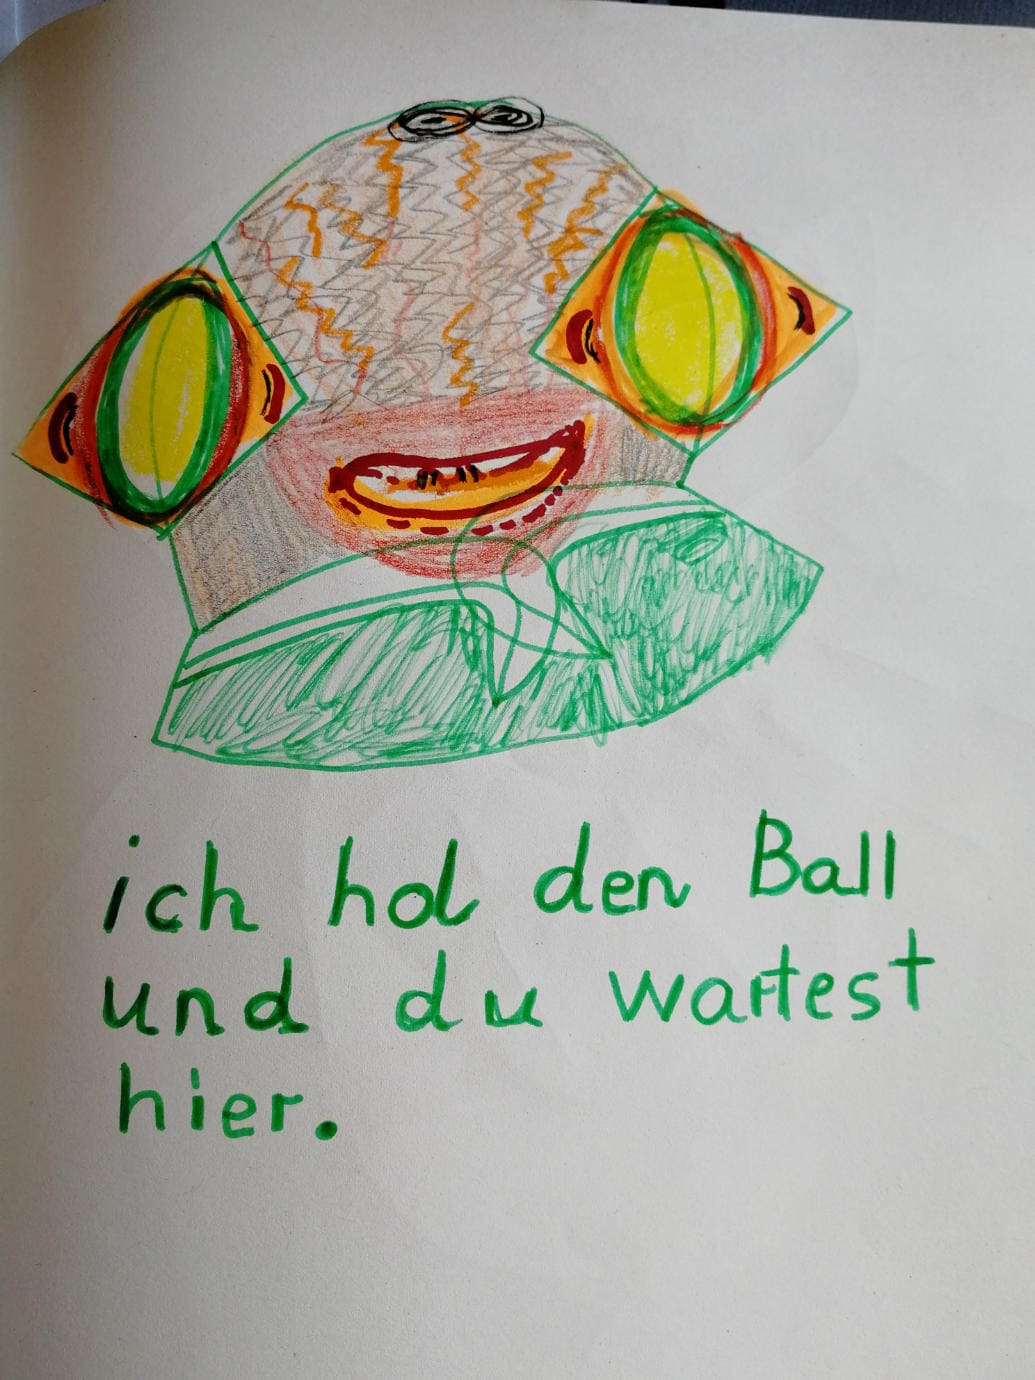 ich hol den Ball
und du wartest
hier.